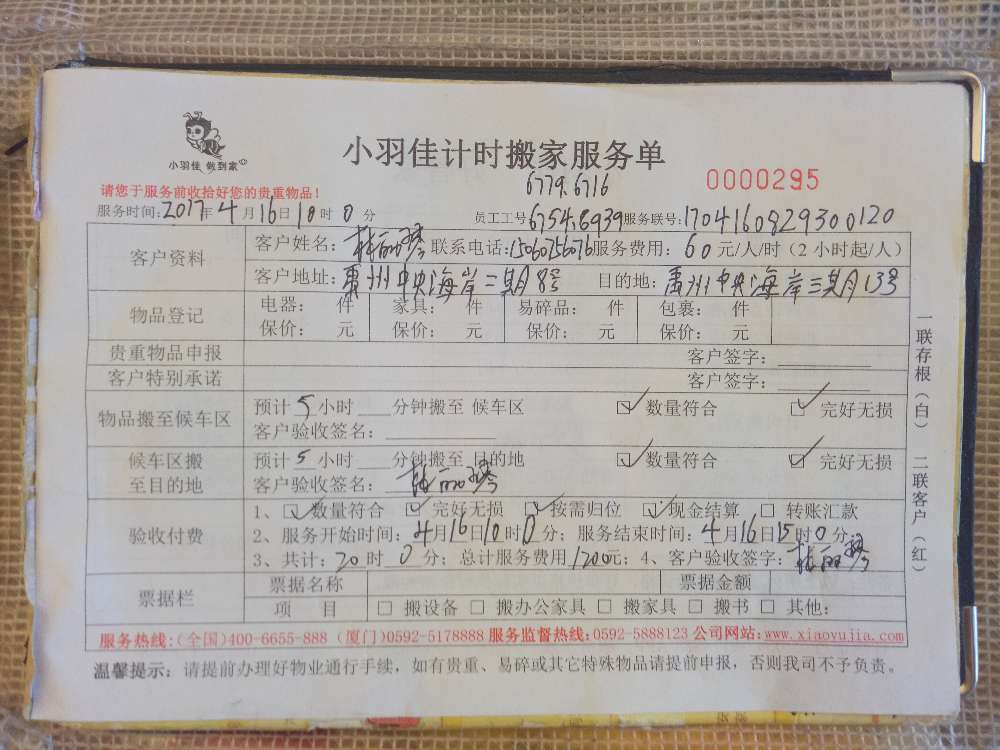 小羽佳 做到家
小羽佳计时搬家服务单
6779.6716
0000295
请您于服务前收拾好您的贵重物品！
服务时间:2017年4月16日10时0分 员工工号6754.8939服务联号:1704160829300120
客户资料
客户姓名:林丽琴 联系电话:15060756076服务费用:60元/人/时（2小时起/人）
客户地址:禹州中央海岸二期8号 目的地:禹州中央海岸三期13号
物品登记
电器: 件 家具: 件 易碎品: 件 包裹: 件
保价: 元 保价: 元 保价: 元 保价: 元
贵重物品申报 客户签字:
客户特别承诺 客户签字:
物品搬至候车区
预计5小时 分钟搬至 候车区 ☑数量符合 ☑完好无损
客户验收签名:
候车区搬至目的地
预计5小时 分钟搬至 目的地 ☑数量符合 ☑完好无损
客户验收签名: 林丽琴
验收付费
1、☑数量符合 ☑完好无损 ☑按需归位 ☑现金结算 □转账汇款
2、服务开始时间:4月16日10时0分; 服务结束时间:4月16日15时0分;
3、共计:20时0分; 总计服务费用1200元; 4、客户验收签字:林丽琴
票据栏
票据名称 票据金额
项目 □搬设备 □搬办公家具 □搬家具 □搬书 □其他:
服务热线:(全国)400-6655-888 (厦门)0592-5178888 服务监督热线:0592-5888123 公司网站:www.xiaoyujia.com
温馨提示: 请提前办理好物业通行手续，如有贵重、易碎或其它特殊物品请提前申报，否则我司不予负责。
一联存根（白） 二联客户（红）